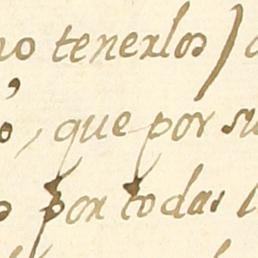 no tenerlos)
, que por su
por todas